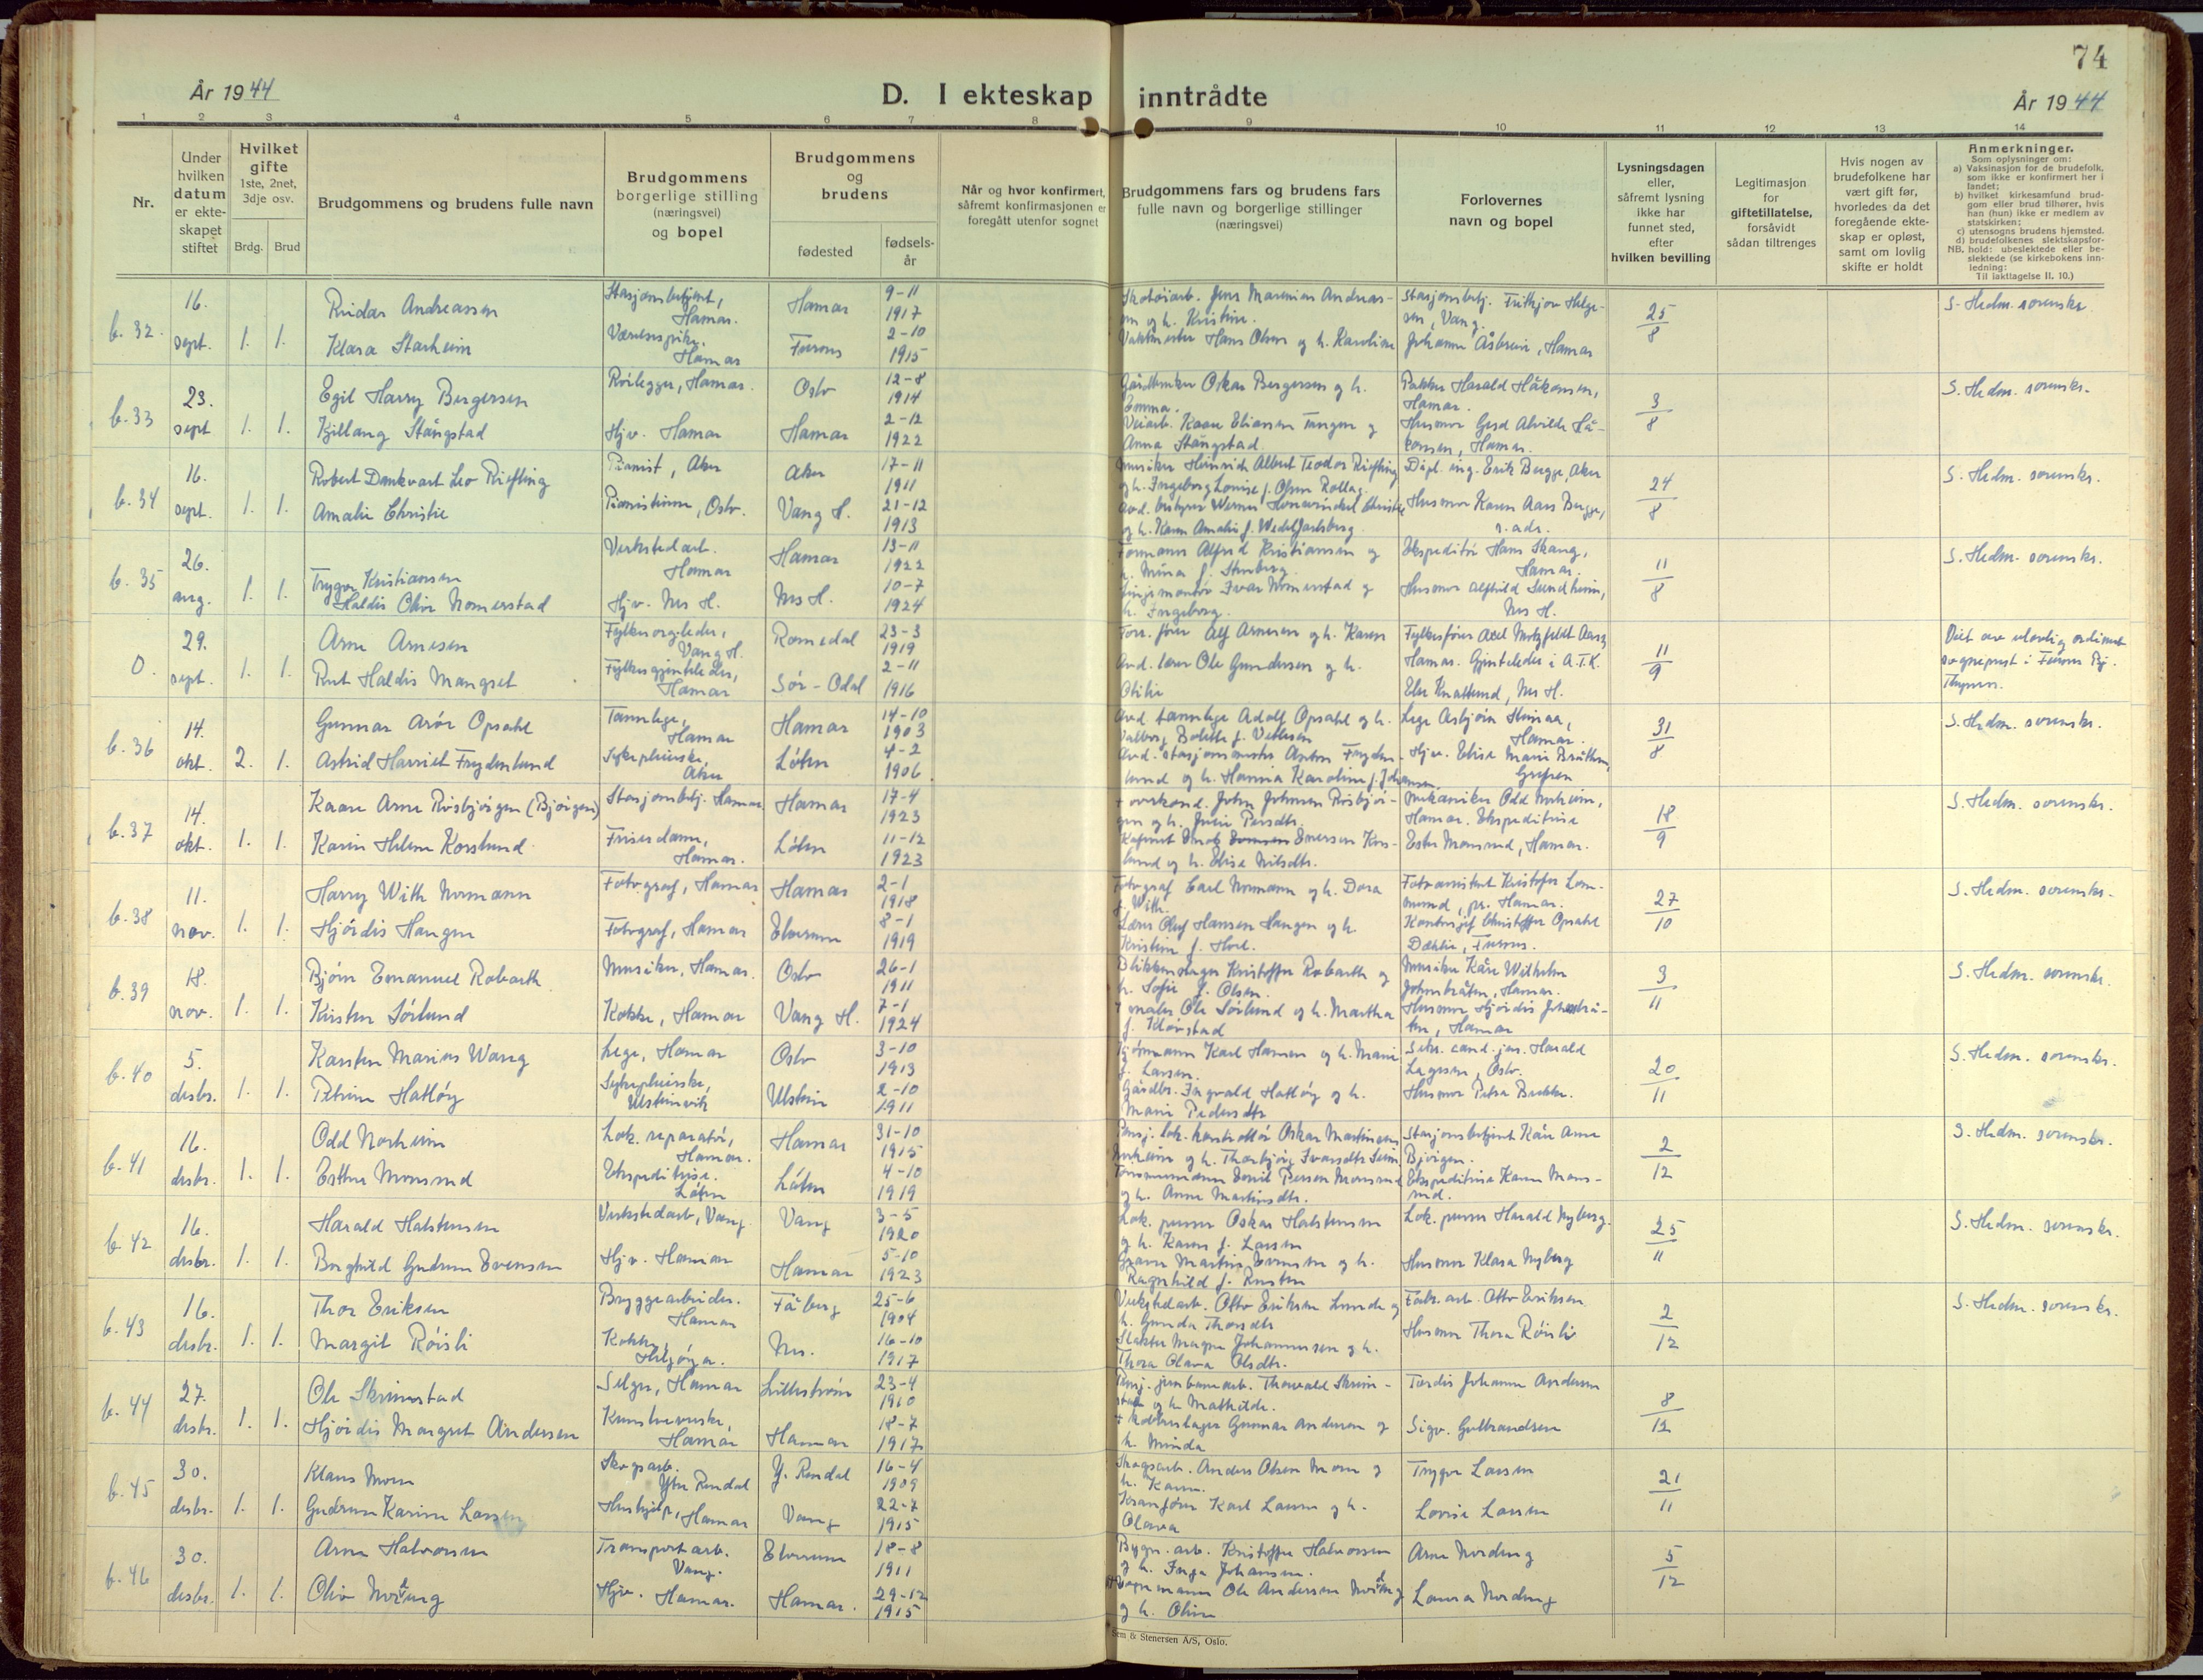 74
År 1944
D. I ekteskap inntrådte
År 1944
1 2 3 4 5 6 7 8 9 10 11 12 13 14
Nr.
Under hvilken datum er ekteskapet stiftet
Hvilket gifte
1ste, 2net, 3dje osv.
Brdg. Brud
Brudgommens og brudens fulle navn
Brudgommens borgerlige stilling (næringsvei) og bopel
Brudgommens og brudens
fødested
fødsels-år
Når og hvor konfirmert, såfremt konfirmasjonen er foregått utenfor sognet
Brudgommens fars og brudens fars fulle navn og borgerlige stillinger (næringsvei)
Forlovernes navn og bopel
Lysningsdagen eller, såfremt lysning ikke har funnet sted, efter hvilken bevilling
Legitimasjon for giftetillatelse, forsåvidt sådan tiltrenges
Hvis nogen av brudefolkene har vært gift før, hvorledes da det foregående ekteskap er opløst, samt om lovlig skifte er holdt
Anmerkninger.
Som oplysninger om:
a) Vaksinasjon for de brudefolk, som ikke er konfirmert her i landet;
b) hvilket kirkesamfund brudgom eller brud tilhører, hvis han (hun) ikke er medlem av statskirken;
c) utensogns brudens hjemsted.
d) brudefolkenes slektskapsforhold: ubeslektede eller beslektede (se kirkebokens innledning:
NB.
Til iakttagelse II. 10.)
b. 32. 16. sept. 1. 1. Reidar Andreassen Stasjonsbetjent, Hamar. Hamar 9-11 1917 Skotøiarb. Jens Marenius Andreassen og h. Kristine. Stasjonsbetj. Frithjov Helgesen, Vang. 25/8 S. Hedm. sorenskr.
Klara Starheim Hamar Furnes 2-10 1915 Vaktmester Hans Olsen og h. Karoline Johanne Hamar
b. 33 23. sept 1. 1. Egil Harry Bergersen Rørlegger, Hamar. Oslo 12-8 1914 Gårdbruker Oskar Bergersen og h. Emma. Pakker Harald Håkonsen, Hamar. 3/8 S. Hedm. sorenskr.
Kjellaug Stångstad Hjv. Hamar Hamar 2-12 1922 Veiarb. Kaare Eliassen Tangen og Anna Stångstad. Husmor Gerd Alvilde Håkonsen, Hamar.
b. 34 16. sept. 1. 1. Robert Dankvart Leo Riefling Pianist, Aker Aker 17-11 1911 Musiker Heinrich Albert Teodor Riefling og h. Ingeborg Louise f. Olsen Rollag. Dipl. ing. Erik Bugge, Aker 24/8 S. Hedm. sorenskr.
Amalie Christie Pianistinne, Oslo. Vang H. 21-12 1913 Avd. bestyrer Werner Christie og h. Karen Amalie f. Wedel Jarlsberg. Husmor Karen Aars Bugge, s. adr.
b. 35 26. aug. 1. 1. Trygve Kristiansen Verkstedarb. Hamar Hamar 13-11 1922 Formann Alfred Kristiansen og h. Mina f. Stenberg. Ekspeditør Hans Skaug, Hamar. 11/8 S. Hedm. sorenskr.
Haldis Olive Nomerstad Hjv. Nes H. Nes H. 10-7 1924 Linjemontør Ivar Nomerstad og h. Ingeborg. Husmor Alfhild Sundheim, Nes H.
0. 29. sept. 1. 1. Arne Arnesen Fylkesorg.leder, Vang H. Romedal 23-3 1919 Forr. fører Alf Arnesen og h. Karen Fylkesfører Axel Motzfeldt Aass, Hamar. 11/9 Viet av ulovlig ordinert sogneprest i Furnes Bj. Thynes.
Rut Haldis Mangset Fylkesgjenteleder, Hamar Sør-Odal 2-11 1916 Avd. lærer Ole Gundersen og h. Otilie Gjenteleder i A.T.K. Else Knatterud, Nes H.
b. 36 14. okt. 2. 1. Gunnar Arór Opsahl Tannlege, Hamar Hamar 14-10 1903 Avd. tannlege Adolf Opsahl og h. Valborg Bolette f. Vetlesen Lege Asbjørn Hamar. 31/8 S. Hedm. sorenskr.
Astrid Harriet Frydenlund Sykepleierske, Aker Løten 4-2 1906 Avd. stasjonsmester Anton Frydenlund og h. Hanna Karoline f. Johansen Hjv. Elise Marie Bråthen, Grefsen
b. 37 14. okt. 1. 1. Kaare Arne Risbjørgen (Bjørgen) Stasjonsbetj. Hamar Hamar 17-4 1923 + overkond. John Johnsen Risbjørgen og h. Julie Persdtr. Mekaniker Odd Norheim, Hamar. 18/9 S. Hedm. sorenskr.
Karin Helene Korslund Friserdame, Hamar. Løten 11-12 1923 Emersen Korslund og h. Elise Nilsdtr. Ekspeditrise Ester Monsrud, Hamar.
b. 38 11. nov. 1. 1. Harry With Normann Fotograf, Hamar Hamar 2-1 1918 Fotograf Carl Normann og h. Dora f. With. Fotoassistent Kristofer pr. Hamar. 27/10 S. Hedm. sorenskr.
Hjørdis Haugen Fotograf, Hamar Elverum 8-1 1919 Lærer Oluf Hansen Haugen og h. Kristine f. Hoel. Kontorsjef Christoffer Opsahl Dæhlie, Furnes.
b. 39 18. nov. 1. 1. Bjørn Emanuel Robarth Musiker, Hamar. Oslo 26-1 1911 Blikkenslager Kristoffer Robarth og h. Sofie f. Olsen. Musiker Kåre Wilhelm Johnsbråten, Hamar. 3/11 S. Hedm. sorenskr.
Kirsten Sørlund Kokke, Hamar Vang H. 7-1 1924 + maler Ole Sørlund og h. Martha f. Kløvstad Husmor Hjørdis Johnsbråten, Hamar
b. 40 5. desbr. 1. 1. Karsten Marius Wang Lege, Hamar Oslo 3-10 1913 Kjørmann Karl Hansen og h. Marie f. Larsen. Sekr. cand. jur. Harald Lagesen, Oslo. 20/11 S. Hedm. sorenskr.
Petrine Hatløy Sykepleierske, Ulsteinvik Ulstein 2-10 1911 Gårdbr. Ingvald Hatløy og h. Marie Pedersdtr Husmor Petra Bakke.
b. 41 16. desbr. 1. 1. Odd Norheim Lok. reparatør, Hamar. Hamar 31-10 1915 Pensj. lok. kontrollør Oskar Martinsen Norheim og h. Thorbjørg Ivarsdtr Seim Stasjonsbetjent Kåre Arne Bjørgen. 2/12 S. Hedm. sorenskr.
Esther Monsrud Ekspeditrise. Løten Løten 4-10 1919 Tømmermann Emil Person Monsrud og h. Anne Martinsdtr. Ekspeditrise Karen Monsrud.
b. 42 16. desbr. 1. 1. Harald Halstensen Verkstedarb, Vang Vang 3-5 1920 Lok. pusser Oskar Halstensen og h. Karen f. Larsen Lok. pusser Harald Nyberg. 25/11 S. Hedm. sorenskr.
Borghild Gudrun Evensen Hjv. Hamar Hamar 5-10 1923 Graver Martin Evensen og h. Ragnhild f. Rusten Husmor Klara Nyberg
b. 43 16. desbr. 1. 1. Thor Eriksen Bryggearbeider. Hamar Fåberg 25-6 1904 Verkstedarb. Otto Eriksen Lunde og h. Gunda Thorsdtr Fabr. arb. Otto Eriksen 2/12 S. Hedm. sorenskr.
Margit Røisli Kokke, Helgøya. Nes. 16-10 1917 Slakter Magne Johannessen og h. Thora Olava Olsdtr. Husmor Thora Røisli
b. 44 27. desbr. 1. 1. Ole Skrimstad Selger, Hamar Lillestrøm 23-4 1910 Pensj. jernbanearb. Thorvald Skrimstad og h. Mathilde. Tordis Johanne Andersen 8/12
Hjørdis Margret Andersen Kunstveverske, Hamar Hamar 18-7 1917 + kobberslager Gunnar Andersen og h. Minda Sigv. Gulbrandsen
b. 45 30. desbr. 1. 1. Klaus Moen Skogsarb. Ytre Rendal Y. Rendal 16-4 1909 Skogsarb. Anders Olsen Moen og h. Karen. Trygve Larsen 21/11
Gudrun Karine Larsen Hushjelp, Hamar Vang 22-7 1915 Kranfører Karl Larsen og h. Olava Lovise Larsen
b. 46 30. desbr. 1. 1. Arne Halvorsen Transportarb. Vang. Elverum 18-8 1911 Bygn. arb. Kristoffer Halvorsen og h. Inga Johansen. Arne Nordeng 5/12
Oliv Nordeng Hjv. Hamar. Hamar. 29-12 1915 Vognmann Ole Andersen Nordeng og h. Oline Laura Nordeng
Sem & Stenersen A/S, Oslo.